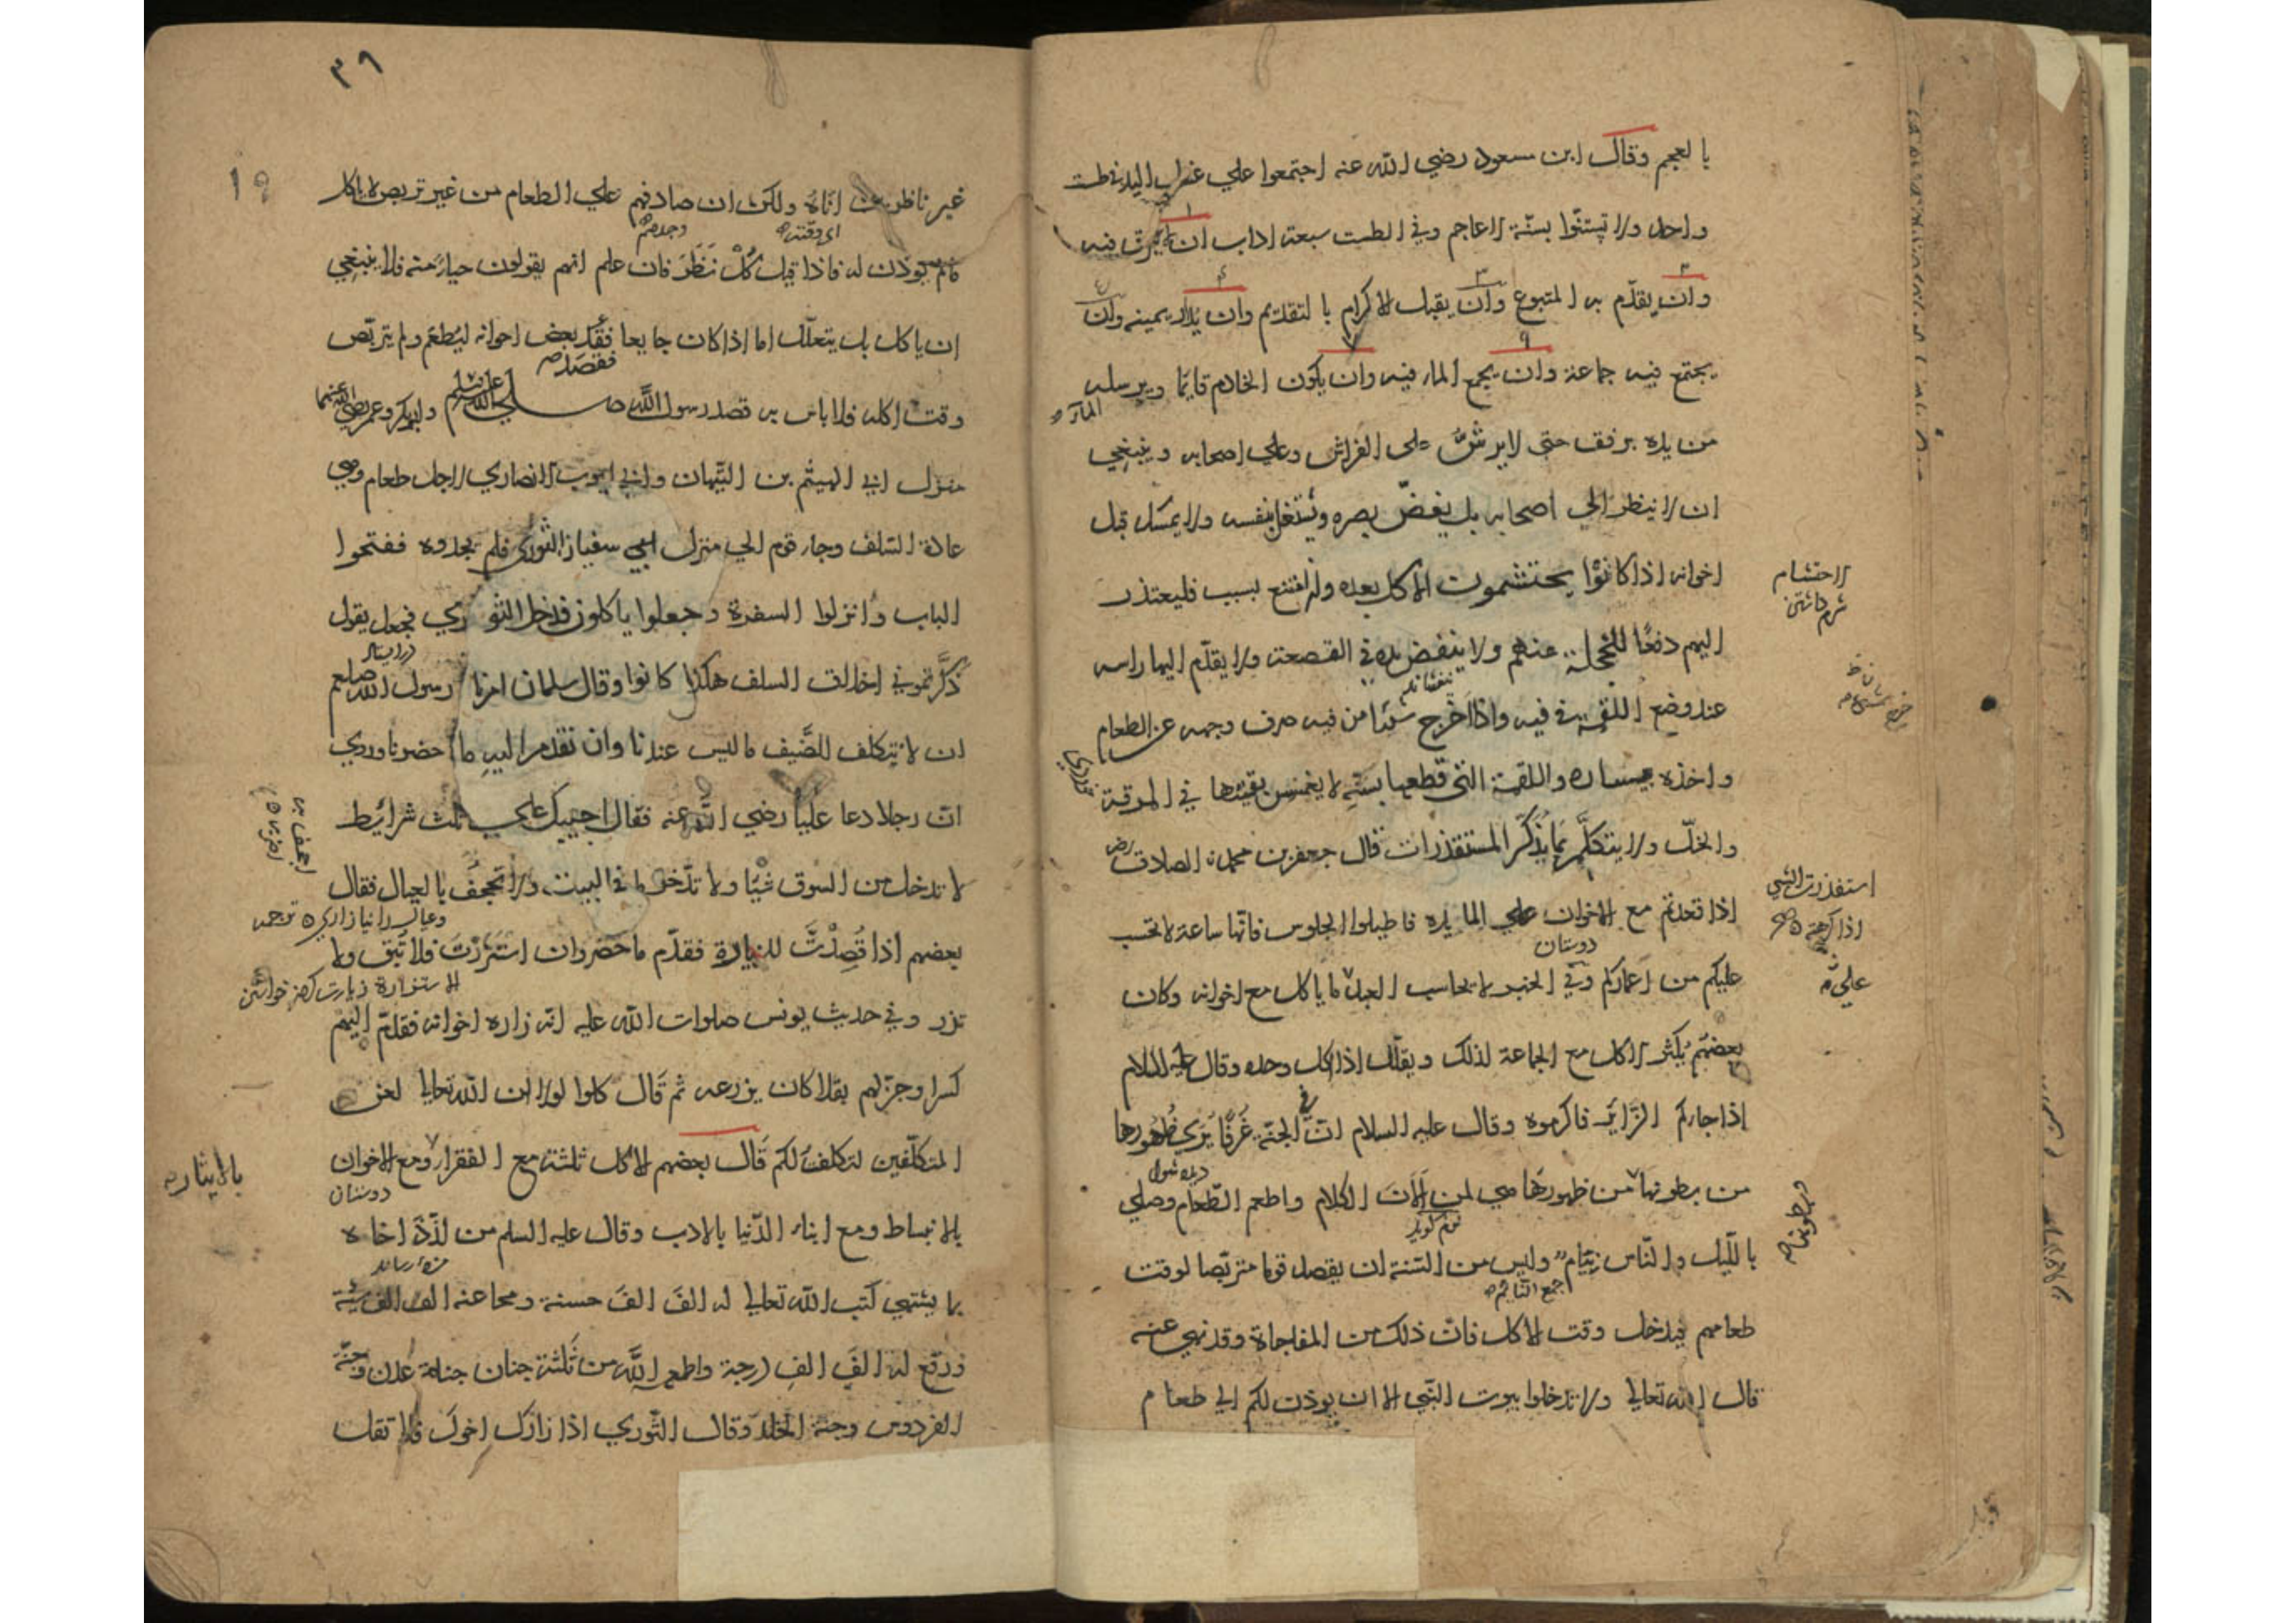 بالعجم وقال ابن مسعود رضي الله عنه اجتمعوا علي غسل اليد في طست
واحد ولا تستنّوا بسنّة الاعاجم وفي الطست سبعة اداب ان لا يبزق فيه
وان يقدّم به المتبوع وان يقبل الاكرام بالتقديم وان يدار يمينه وان
يجتمع فيه جماعة وان يجمع الماء فيه وان يكون الخادم قايما ويرسله
الماء
من يده برفق حتى لا يرشّ على الفراش وعلي اصحابه وينبغي
ان لا ينظر الي اصحابه بل يغضّ بصره ويشتغل بنفسه ولا يمسك قبل
اخوانه اذا كانوا يحتشمون الاكل بعده وان امتنع لسبب فليعتذر
اليهم دفعا للخجلة عنهم ولا ينفض يده في القصعة ولا يقدّم اليها راسه
عند وضع اللقمة في فيه واذا اخرج شيئا من فيه صرف وجهه عن الطعام
واخذه بيساره واللقمة التي قطعها بسنّه لا يغمس بقيتها في المرقة
والخلّ ولا يتكلّم بما يذكّر المستقذرات قال جعفر بن محمد الصادق رض
اذا قعدتم مع الاخوان علي المايدة فاطيلوا الجلوس فانّها ساعة لا تحسب
دوستان
عليكم من اعماركم وفي الخبر لا يحاسب العبد بما ياكل مع اخوانه وكان
بعضهم يكثر الاكل مع الجماعة لذلك ويقلّل اذا اكل وحده وقال عليه السلام
اذا جاءكم الزّاير فاكرموه وقال عليه السلام انّ في الجنّة غرفا يري ظهورها
من بطونها من ظهورها هي لمن الان الكلام واطعم الطّعام وصلي
نرم كويد
بالليل والنّاس نيام وليس من السّنة ان يقصد قوما متربّصا لوقت
جمع النائم
طعامهم فيدخل وقت الاكل فانّ ذلك من المفاجاة وقد نهي عنه
قال الله تعالي ولا تدخلوا بيوت النّبي الا ان يوذن لكم الي طعام
الاحتشام
شرم داشتن
استقذرت الشي
اذا كرهته
علي
وبطونها
٣٩
١٩
غير ناظرين اناه ولكن ان صادفهم علي الطعام من غير تربص لا ياكل
اي وقته
وجدهم
مالم يوذن له فاذا قيل كل نظر فان علم انهم يقولون حياء منه فلا ينبغي
ان ياكل بل يتعلّل اما اذا كان جايعا فقصد بعض اخوانه ليطعم ولم يتربّص
فقصد
وقت اكله فلا باس به قصد رسول الله صلي الله عليه وسلم وابوبكر وعمر رضي الله عنهما
منزل ابي الهيثم بن التّيهان وابي ايوب الانصاري لاجل طعام وهي
عادة السّلف وجاء قوم الي منزل ابي سفيان الثوري فلم يجدوه ففتحوا
الباب وانزلوا السفرة وجعلوا ياكلون فدخل الثوري فجعل يقول
ذكّرتموني اخلاق السلف هكذا كانوا وقال سلمان امرنا رسول الله صلعم
ان لا نتكلف للضّيف ما ليس عندنا وان نقدم اليه ما حضرنا وروي
انّ رجلا دعا عليّا رضي الله عنه فقال اجيبك علي ثلث شرائط
لا تدخل من السوق شيئا ولا تدّخر ما في البيت ولا تجحف بالعيال فقال
بعضهم اذا قُصِدْتَ للزيارة فقدّم ما حضر وان استزرت فلا تبق ولا
تذر وفي حديث يونس صلوات الله عليه انّه زاره اخوانه فقدّم اليهم
كسرا وجزّ لهم بقلا كان يزرعه ثم قال كلوا لولا ان الله تعالي لعن
المتكلّفين لتكلفت لكم قال بعضهم الاكل ثلثة مع الفقراء ومع الاخوان
دوستان
بالانبساط ومع ابناء الدّنيا بالادب وقال عليه السلم من لذّذ اخاه
بما يشتهي كتب الله تعالي له الفَ الفَ حسنة ومحا عنه الف الف سيئة
ورفع له الفَ الفِ درجة واطعمه الله من ثلثة جنان جنة عدن وجنّة
الفردوس وجنة الخلد وقال الثّوري اذا زارك اخوك فلا تقل
بالايثار